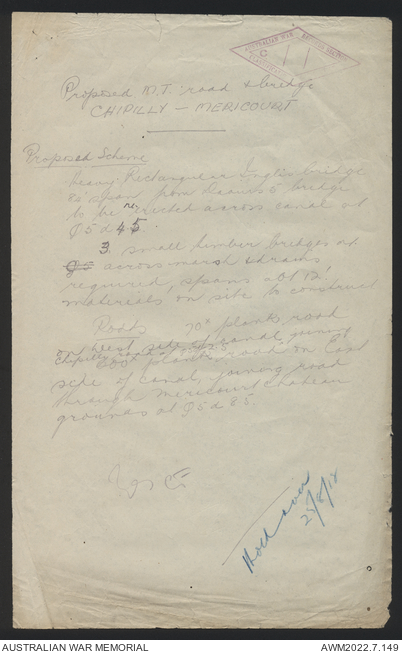 AUSTRALIAN WAR RECORDS SECTION
Proposed M.T. road & bridge
CHIPILLY — MERICOURT
Proposed Scheme
Heavy Rectangular Inglis bridge
85' span from bridge
to be re erected across canal at
Q5d45.
3 small timber bridges
across marsh & drains
required, spans 12'
materials on site to construct
Roads 70x planks road
West side of canal, joining
Chipilly road
600x planks road on East
side of canal, joining road
through Mericourt Chateau
grounds at Q5d85.
Hold over
25/8/18
AUSTRALIAN WAR MEMORIAL
AWM2022.7.149